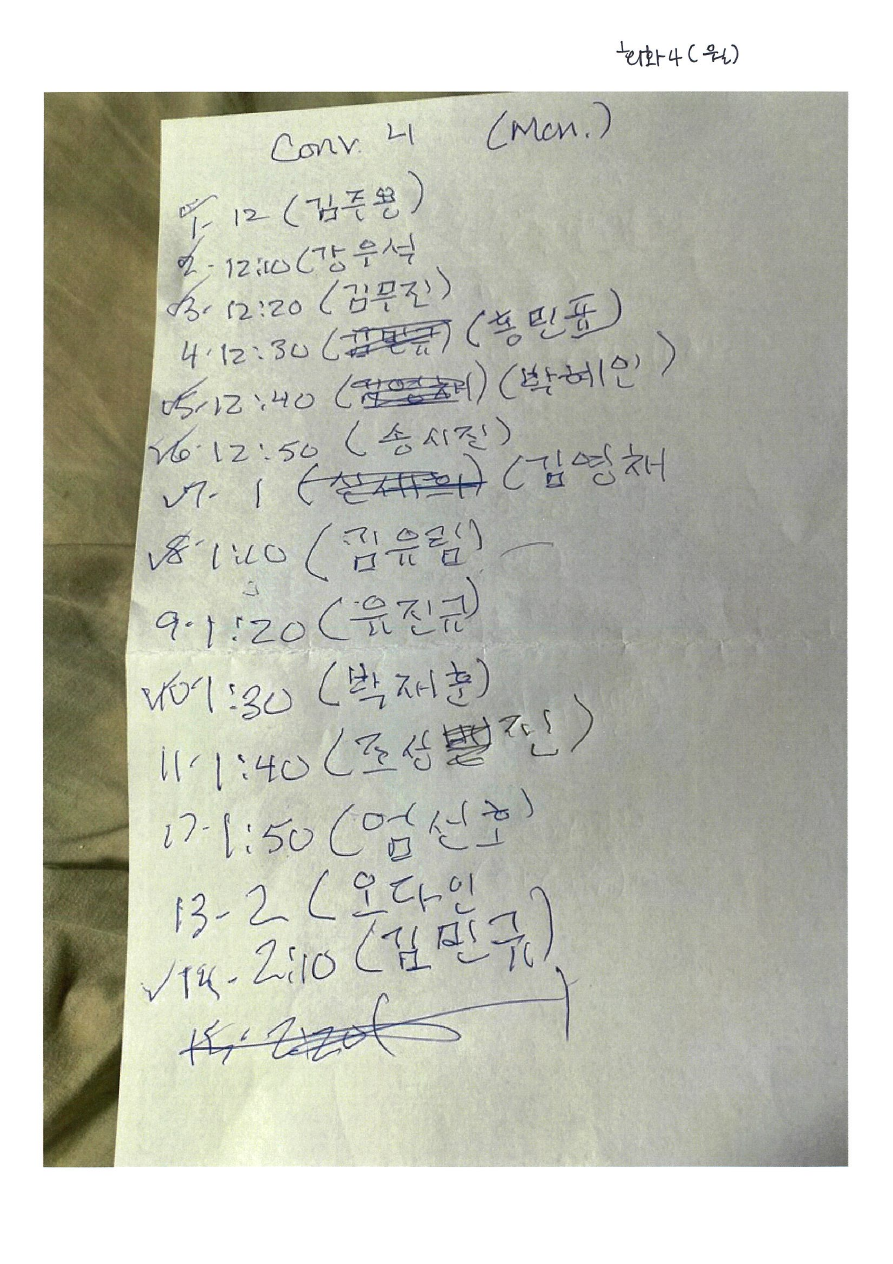 회화4(월)
Conv. 4 (Mon.)
1- 12 (김주용)
2- 12:10 (강우석
3- 12:20 (김무진)
4- 12:30 (김민규) (홍민표)
5- 12:40 (김영채) (박혜인)
6- 12:50 (송시진)
7- 1 (김영채
8- 1:10 (김유림)
9- 1:20 (유진규)
10- 1:30 (박재훈)
11- 1:40 (조상진)
12- 1:50 (엄선호)
13- 2 (오다인
14- 2:10 (김민규)
15- 2:20 (